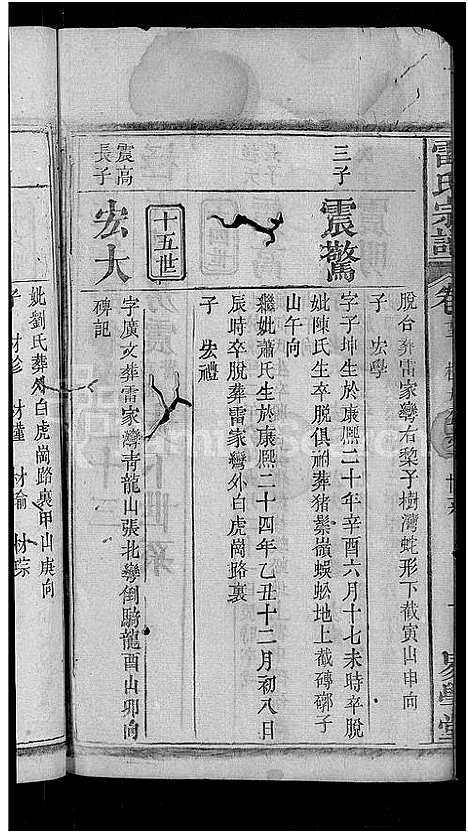 雷氏宗譜
卷
易學堂
脫合葬雷家灣右梨子樹灣蛇形下截寅山申向
子 宏學
三子
震驚
字子坤生於康熙二十年辛酉六月十七未時卒脫
妣陳氏生卒脫俱祔葬猪鬃嶺蜈蚣地上截磚廓子
山午向
繼妣蕭氏生於康熙二十四年乙丑十二月初八日
辰時卒脫葬雷家灣外白虎崗路裏
子 宏禮
十五世
震高
長子
宏大
字廣文葬雷家灣青龍山張北灣倒騎龍酉山卯向
碑記
妣劉氏葬外白虎崗路裏甲山庚向
子 材珍 材瑾 材瑜 材琮